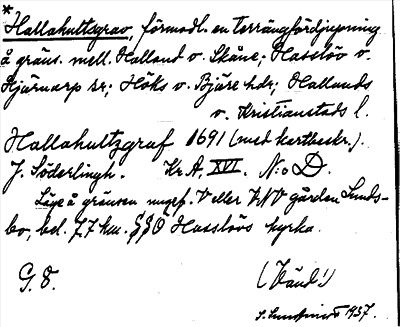 *
Hallahultsgrav, förmodl. en terrängfördjupning
å gräns. mell. Halland o. Skåne; Hasslöv o.
Hjärnarp sr; Höks o. Bjäre hdr; Hallands
o. Kristianstads l.
Hallahultzgraf 1691 (med kartbeskr.).
J. Söderlingh. Kr. A. XVI. N:o D.
Läge å gränsen ungf. V eller VNV gården Lunds-
bo, bel. 7,7 km. SSO Hasslövs kyrka.
G. 8. (Vänd!)
1937.